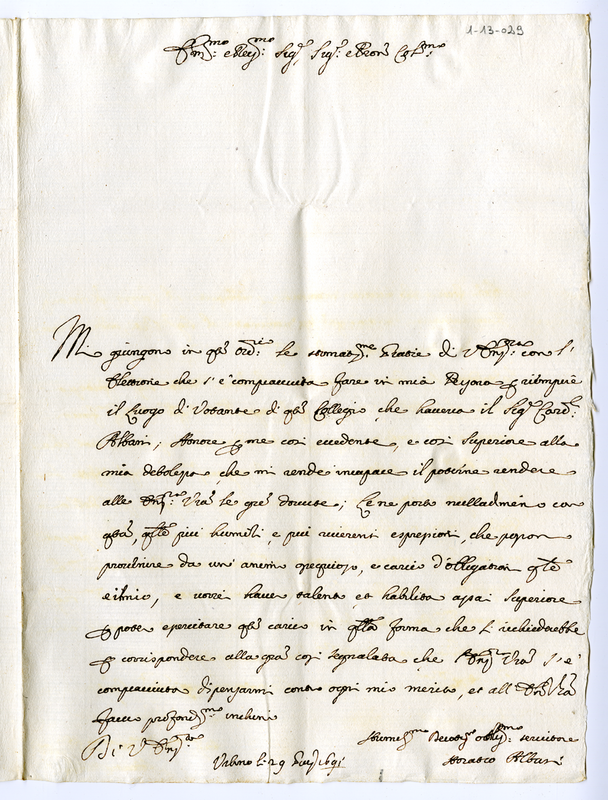 1-13-029
Em.mo e Rev.mo Sig.r Sig.r e Pron Col.mo
Mi giungono in q.to ord.rio le stimatis.me Grazie di V. Em.za con l'
Elettione che s'è compiacciuta fare in mia Persona p riempire
il Luogo di Votante di q.to Collegio che haveva il Sig.r Card.l
Albani; Honore p me così eccedente, e così superiore alla
mia debolezza che mi rende incapace il poterne rendere
alle Em.za V.ra le gre dovute; Le ne porto nulladimeno con
q.ta, q.lle più humili, e più riverenti espressioni, che posson
provenire da un' animo ossequioso, e carico d'obligationi q.le
è il mio, e vorrei haver talento et habilità assai superiore
p poter esercitare q.to carico in q.lla forma che si richiederebbe
p corrispondere alla gra così segnalata che l'Em.za V.ra s'è
compiacciuta dispensarmi contro ogni mio merito, et all' Em.za V.ra
faccio profond.mo inchino
Di V. Em.za
Urbino li 29 1691
Humilis.mo Devotis.o et Obl.mo servitore
Horatio Albani